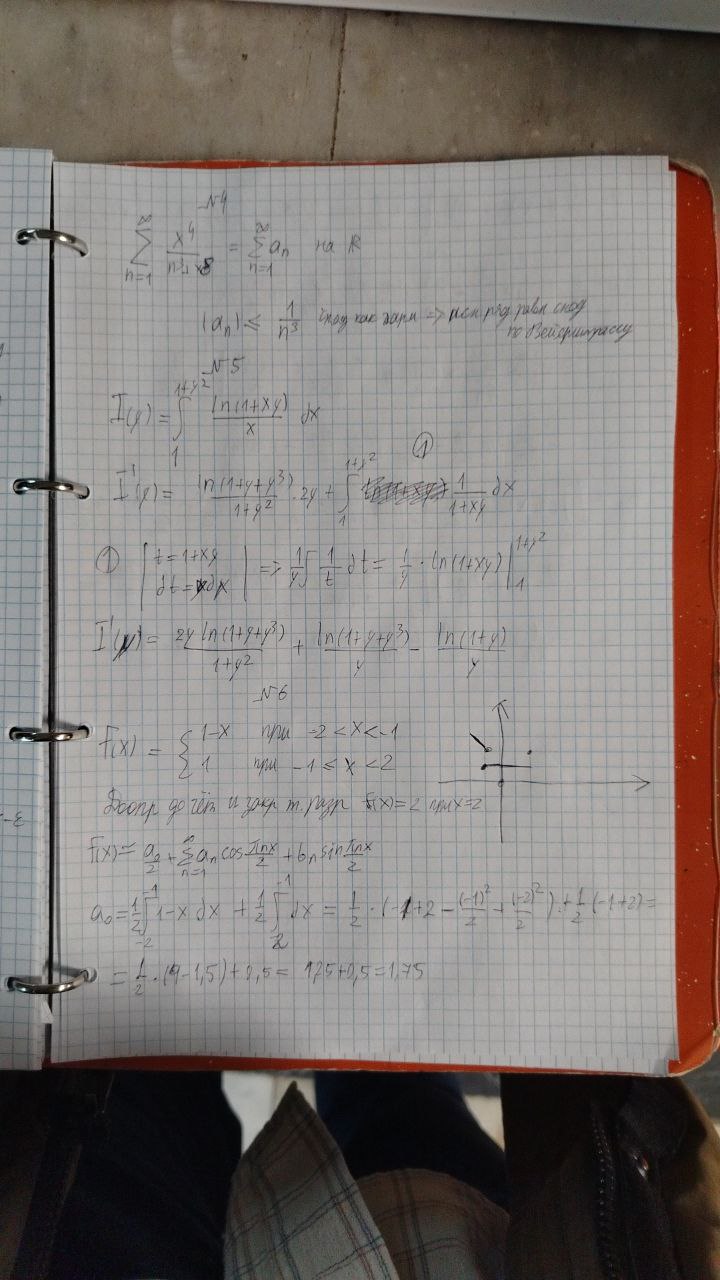 №4
∑_{n=1}^{∞} x⁴/(n³+x⁸) = ∑_{n=1}^{∞} aₙ на ℝ
|aₙ| ≤ 1/n³ сход как гарм ⇒ исх ряд равн сход
по Вейерштрассу
№5
I(y) = ∫_{1}^{1+y²} ln(1+xy)/x dx
I'(y) = ln(1+y+y³)/(1+y²) · 2y + ∫_{1}^{1+y²} 1/(1+xy) dx ①
① | t=1+xy dt=ydx | ⇒ 1/y ∫ 1/t dt = 1/y · ln(1+xy) |_{1}^{1+y²}
I'(y) = 2y ln(1+y+y³)/(1+y²) + ln(1+y+y³)/y − ln(1+y)/y
№6
f(x) = { 1-x при -2<x<-1
1 при -1≤x<2
Доопр до чёт и закр т. разр f(x)=2 при x=2
f(x) = a₀/2 + ∑_{n=1}^{∞} aₙ cos πnx/2 + bₙ sin πnx/2
a₀ = 1/2 ∫_{-2}^{-1} 1-x dx + 1/2 ∫_{2}^{-1} dx = 1/2 · (-1+2 - (-1)²/2 + (-2)²/2) + 1/2 (-1+2) =
= 1/2 · (4-1,5) + 0,5 = 1,25+0,5 = 1,75